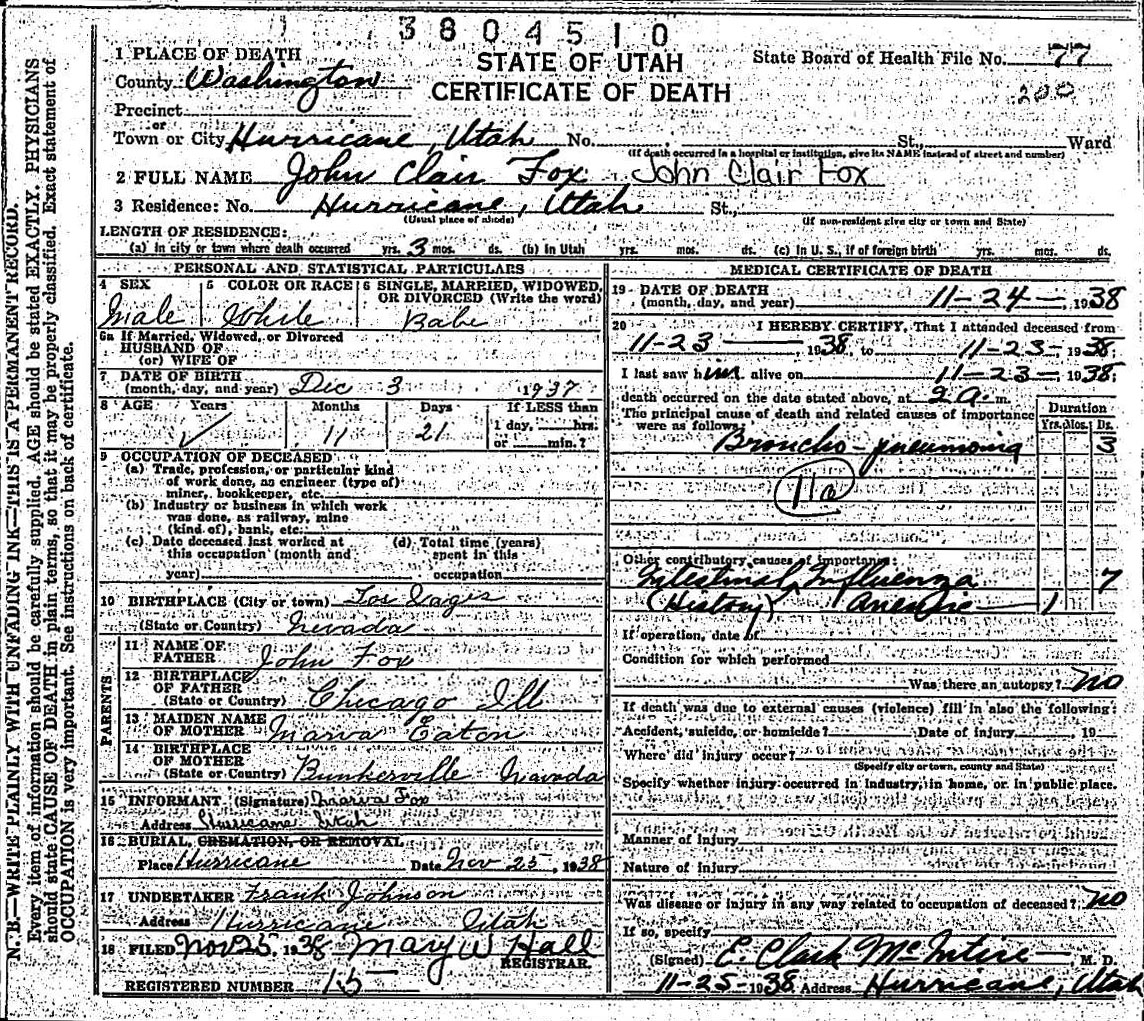 3804510
STATE OF UTAH
CERTIFICATE OF DEATH
State Board of Health File No. 77
200
1 PLACE OF DEATH
County Washington
Precinct
or
Town or City Hurricane, Utah No. St., Ward
(If death occurred in a hospital or institution, give its NAME instead of street and number)
2 FULL NAME John Clair Fox John Clair Fox
3 Residence: No. Hurricane, Utah St.,
(Usual place of abode) (If non-resident give city or town and State)
LENGTH OF RESIDENCE:
(a) In city or town where death occurred yrs. 3 mos. ds. (b) In Utah yrs. mos. ds. (c) In U. S., if of foreign birth yrs. mos. ds.
PERSONAL AND STATISTICAL PARTICULARS
4 SEX 5 COLOR OR RACE 6 SINGLE, MARRIED, WIDOWED,
OR DIVORCED (Write the word)
Male White Babe
6a If Married, Widowed, or Divorced
HUSBAND OF
(or) WIFE OF
7 DATE OF BIRTH
(month, day, and year) Dec 3 1937
8 AGE Years Months Days If LESS than
1 day, hrs.
or min.?
11 21
9 OCCUPATION OF DECEASED
(a) Trade, profession, or particular kind
of work done, as engineer (type of)
miner, bookkeeper, etc.
(b) Industry or business in which work
was done, as railway, mine
(kind of), bank, etc.
(c) Date deceased last worked at
this occupation (month and
year)
(d) Total time (years)
spent in this
occupation
10 BIRTHPLACE (City or town) Los Vages
(State or Country) Nevada
PARENTS
11 NAME OF
FATHER John Fox
12 BIRTHPLACE
OF FATHER
(State or Country) Chicago Ill
13 MAIDEN NAME
OF MOTHER Marva Eaton
14 BIRTHPLACE
OF MOTHER
(State or Country) Bunkerville Nevada
15 INFORMANT (Signature) Marva Fox
Address Hurricane Utah
16 BURIAL, CREMATION, OR REMOVAL
Place Hurricane Date Nov 25, 1938
17 UNDERTAKER Frank Johnson
Address Hurricane Utah
18 FILED Nov 25, 1938 Mary W Hall
REGISTRAR
REGISTERED NUMBER 15
MEDICAL CERTIFICATE OF DEATH
19 DATE OF DEATH
(month, day, and year) 11-24- 1938
20 I HEREBY CERTIFY, That I attended deceased from
11-23 , 1938, to 11-23- 1938;
I last saw him alive on 11-23-, 1938;
death occurred on the date stated above, at 2 a. m.
The principal cause of death and related causes of importance
were as follows:
Duration
Yrs. Mos. Ds.
Broncho-pneumonia 3
11a
Other contributory causes of importance:
Intestinal Influenza 7
(History) Anemic 1
If operation, date of
Condition for which performed
Was there an autopsy? no
If death was due to external causes (violence) fill in also the following:
Accident, suicide, or homicide? Date of injury 19
Where did injury occur?
(Specify city or town, county and State)
Specify whether injury occurred in industry, in home, or in public place.
Manner of injury
Nature of injury
Was disease or injury in any way related to occupation of deceased? no
If so, specify
(Signed) C. Clark McIntire M. D.
11-25-1938 Address Hurricane, Utah
N. B.—WRITE PLAINLY WITH UNFADING INK—THIS IS A PERMANENT RECORD.
Every item of information should be carefully supplied. AGE should be stated EXACTLY. PHYSICIANS
should state CAUSE OF DEATH in plain terms, so that it may be properly classified. Exact statement of
OCCUPATION is very important. See instructions on back of certificate.